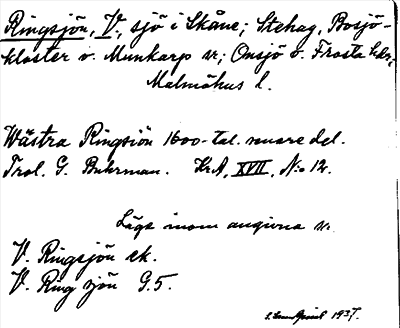 Ringsjön, V., sjö i Skåne; Stehag, Bosjö-
kloster o. Munkarp sn; Onsjö o. Frosta hdr,
Malmöhus l.
Wästra Ringsiön 1600-tal. senare del.
Trol. G. Buhrman. Kr.A. XVII, N:o 12.
Läge inom angivna sn.
V. Ringsjön ek.
V. Ringsjön G.5.
1937.